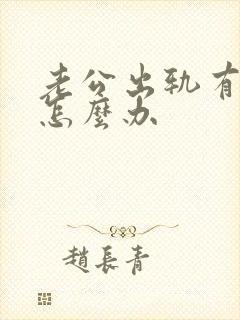 老公出轨有
怎麼办
趙長青